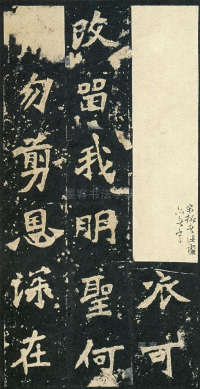 衣可
改留我明聖何
勿剪恩深在